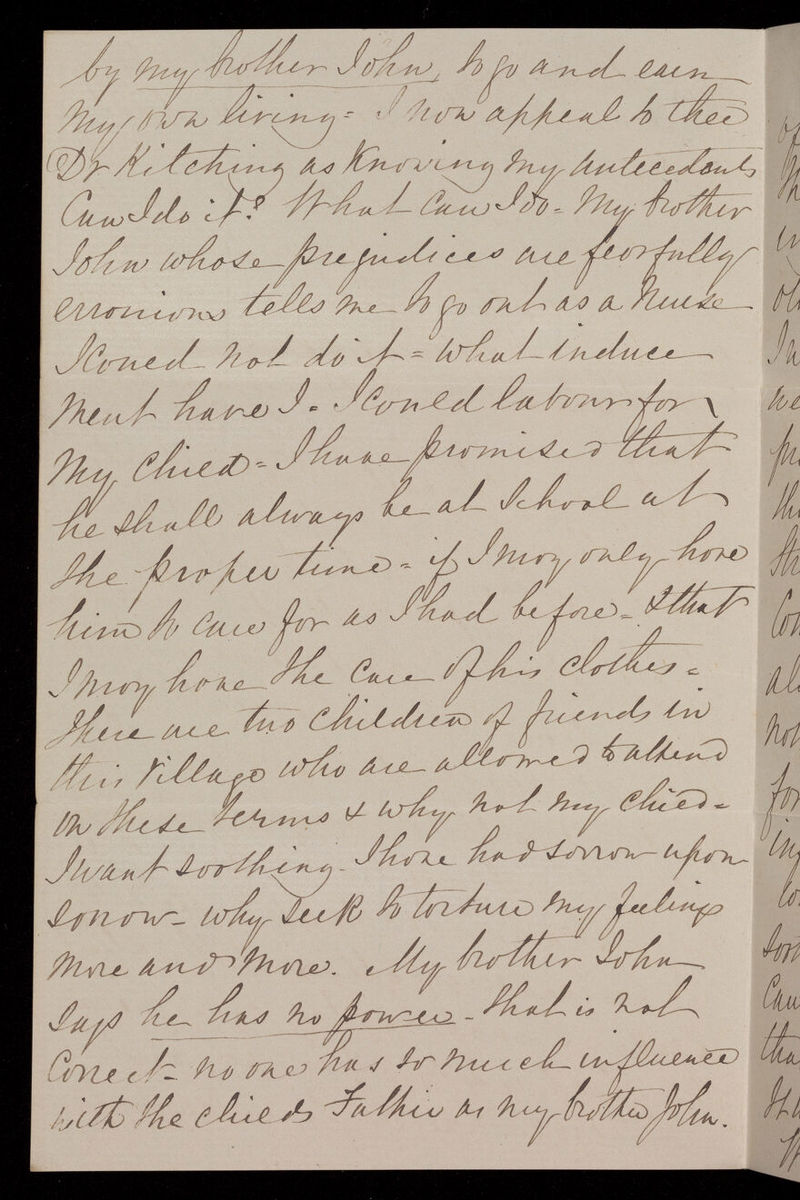 by my brother John, to go and earn
my own living = I now appeal to thee
Dr Kitching as knowing my antecedants
Can I do it? What can I do = My brother
John whose prejudices are fearfully
erronious tells me to go out as a Nurse
I coued not do it = what induce
ment have I. I coueld labour for
my chied = I have promised that
he shall always be at School at
the proper time = if I may only have
him to care for as I had before = & that
I may have the care of his clothes =
There are two children of friends in
this Village who are allowed to attend
on these terms & why not my chied =
I want soothing. I have had sorrow upon
sorrow - why seek to torture my feelings
more and more. My brother John
says he has no power - that is not
Correct - no one has so much influence
with the chieds Father as my brother John.